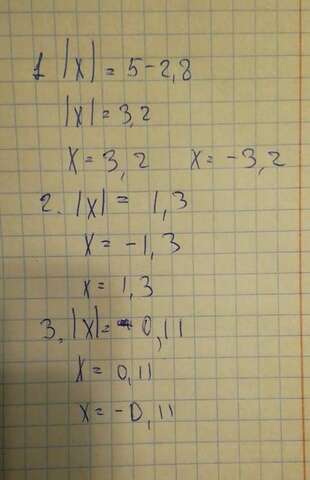 1. |x| = 5-2,8
|x| = 3,2
x = 3,2 x = -3,2
2. |x| = 1,3
x = -1,3
x = 1,3
3. |x| = 0,11
x = 0,11
x = -0,11